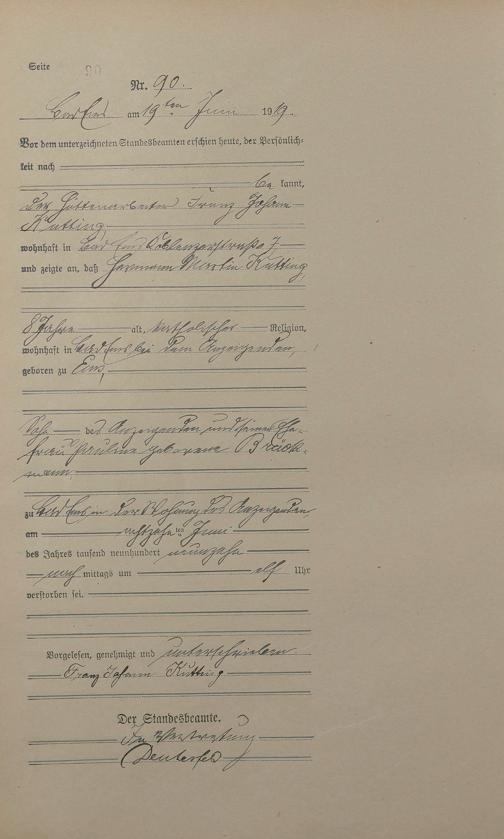 Seite 90
Nr. 90.
Bad Ems am 19ten Juni 1919.
Vor dem unterzeichneten Standesbeamten erschien heute, der Persönlich-
keit nach
be kannt,
der Hüttenarbeiter Franz Johann
Kutting
wohnhaft in Bad Ems Coblenzerstraße 7
und zeigte an, daß Hermann Martin Kutting
8 Jahre alt, katholischer Religion,
wohnhaft in Bad Ems bei dem Anzeigenden,
geboren zu Ems,
Sohn des Anzeigenden und seiner Ehe-
frau Pauline geborene
mann
zu Bad Ems in der Wohnung des Anzeigenden
am achtzehnten Juni
des Jahres tausend neunhundert neunzehn
nach mittags um elf Uhr
verstorben sei.
Vorgelesen, genehmigt und unterschrieben
Franz Johann Kutting
Der Standesbeamte.
In Vertretung